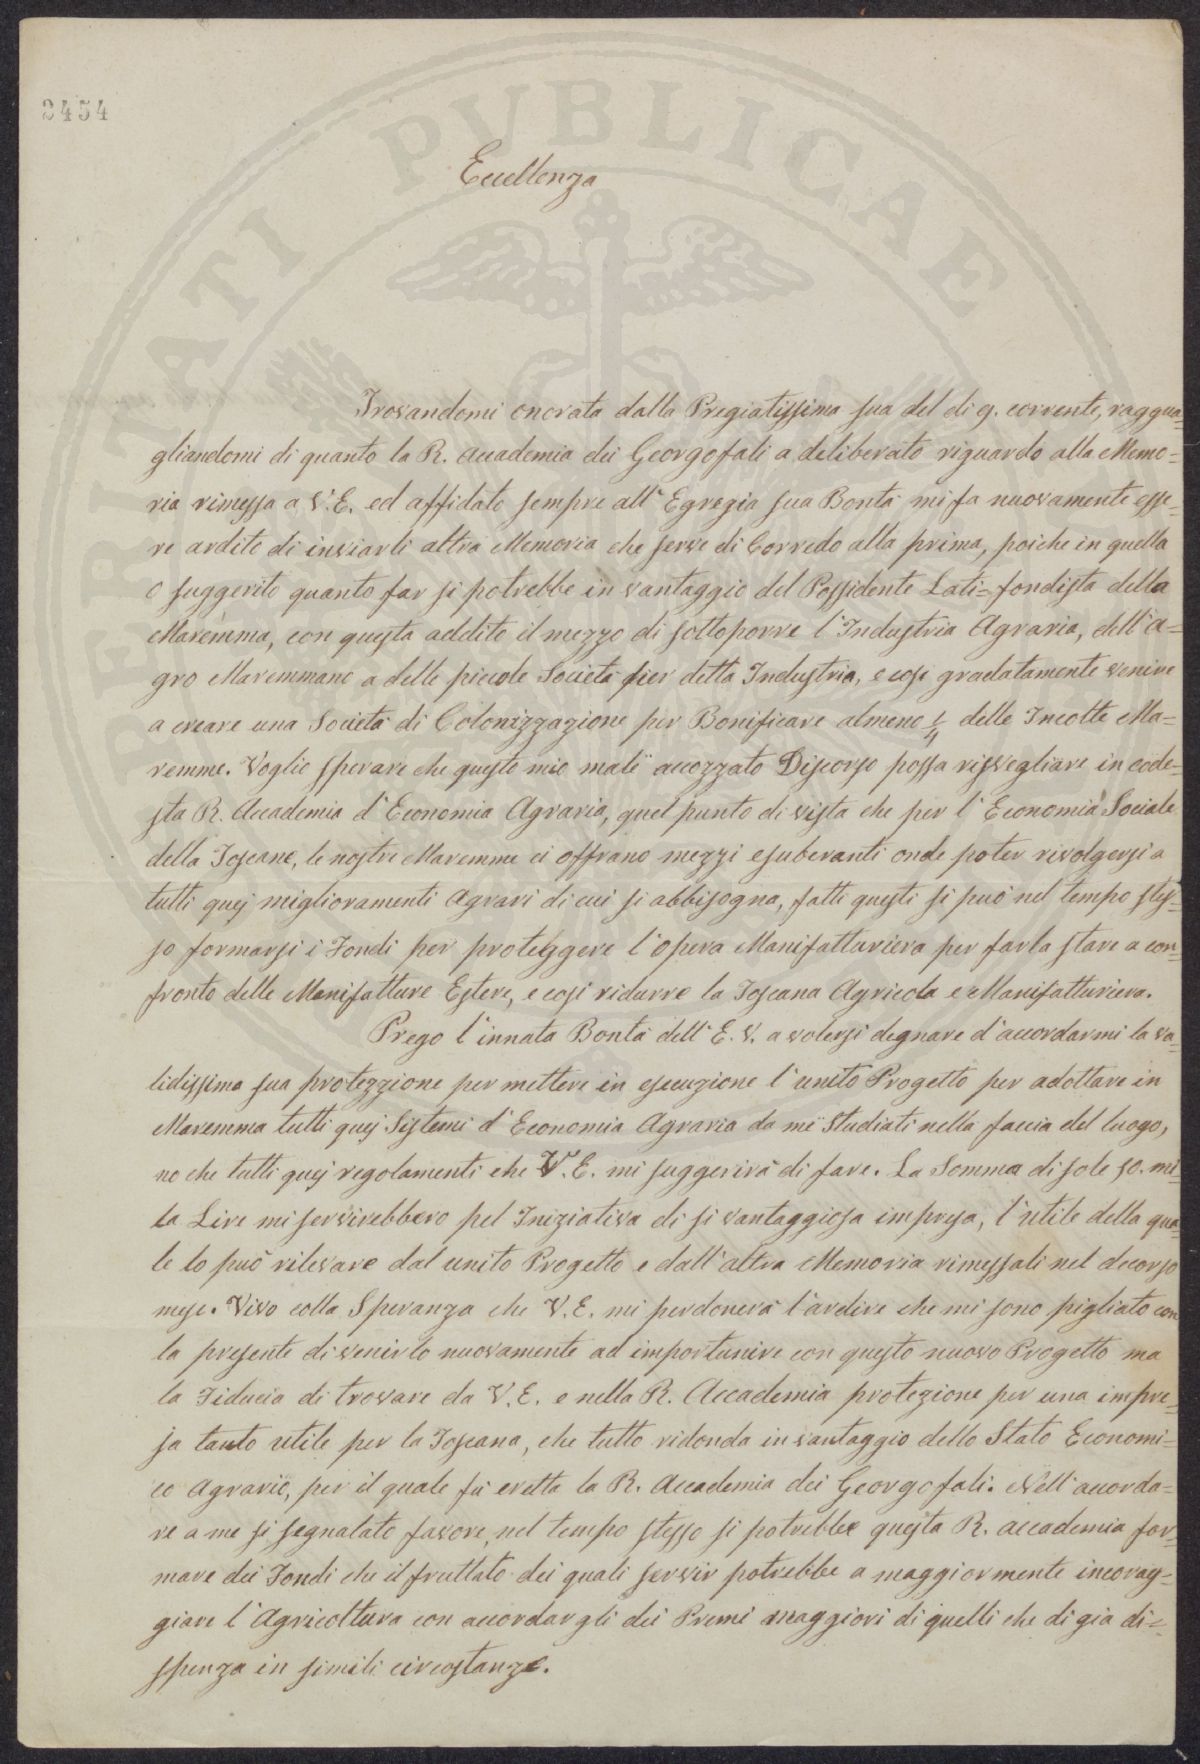 PROSPERITATI PUBLICAE
2454
Eccellenza
Trovandomi onorata dalla Pregiatissima sua del di 9. corrente, raggua=
gliandomi di quanto la R. Accademia dei Georgofali a deliberato riguardo alla Memo=
ria rimessa a V.E. ed affidato sempre all'Egregia sua Bontà mi fa nuovamente esse=
re ardito di inviarli altra Memoria che serve di Corredo alla prima, poiche in quella
o suggerito quanto far si potrebbe in vantaggio del Possidente Lati=fondista della
Maremma, con questa addito il mezzo di sottoporre l'Industria Agraria, dell'A=
gro Maremmano a delle piccole Società per detta Industria, e cosi gradatamente venire
a creare una Società di Colonizzazione per Bonificare almeno 1/4 delle Incolte Ma=
remme. Voglio sperare che questo mio male accozzato Discorso possa risvegliare in code=
sta R. Accademia d'Economia Agraria, quel punto di vista che per l'Economia Sociale
della Toscana, le nostre Maremme ci offrano mezzi esuberanti onde poter rivolgersi a
tutti quej miglioramenti Agrari di cui si abbisogna, fatti questi si può nel tempo stes=
so formarsi i Fondi per proteggere l'opera Manifatturiera per farla stare a con=
fronto delle Manifatture Estere, e cosi ridurre la Toscana Agricola e Manifatturiera.
Prego l'innata Bontà dell'E.V. a volersi degnare d'accordarmi la va=
lidissima sua protezzione per mettere in esecuzione l'unito Progetto per adottare in
Maremma tutti quej Sistemi d'Economia Agraria da me studiati nella faccia del luogo,
no che tutti quej regolamenti che V.E. mi suggerirà di fare. La Somma di sole 50. mi=
la Lire mi servirebbero pel Iniziativa di si vantaggiosa impresa, l'utile della qua=
le lo può rilevare dal unito Progetto e dall'altra Memoria rimessali nel decorso
mese. Vivo colla Speranza che V.E. mi perdonerà l'ardire che mi sono pigliato con
la presente di venirlo nuovamente ad importunire con questo nuovo Progetto ma
la Fiducia di trovare da V.E. e nella R. Accademia protezione per una impre=
sa tanto utile per la Toscana, che tutto ridonda in vantaggio dello Stato Economi=
co Agrario, per il quale fu eretta la R. Accademia dei Georgofali. Nell'accorda=
re a me si segnalato favore, nel tempo stesso si potrebbe questa R. Accademia for=
mare dei Fondi che il fruttato dei quali servir potrebbe a maggiormente incorag=
giare l'Agricoltura con accordargli dei Premi maggiori di quelli che di gia di=
spenza in simili circostanze.